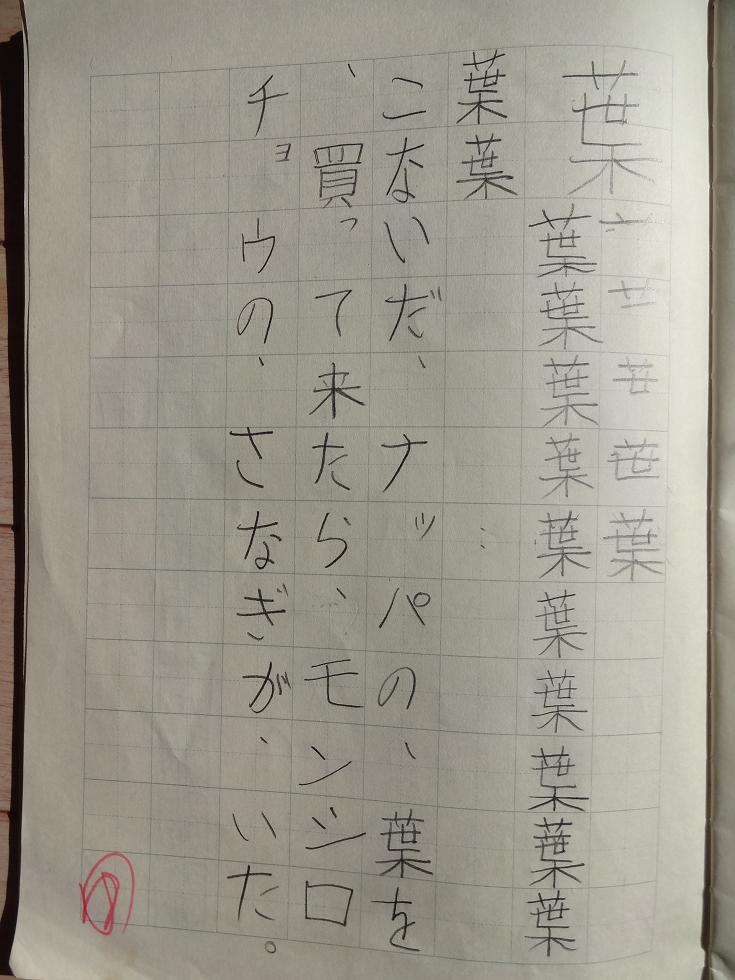 葉
葉
葉葉葉葉葉葉葉葉葉葉
葉葉
こないだ、ナッパの、葉を
、買って来たら、モンシロ
チョウの、さなぎが、いた。